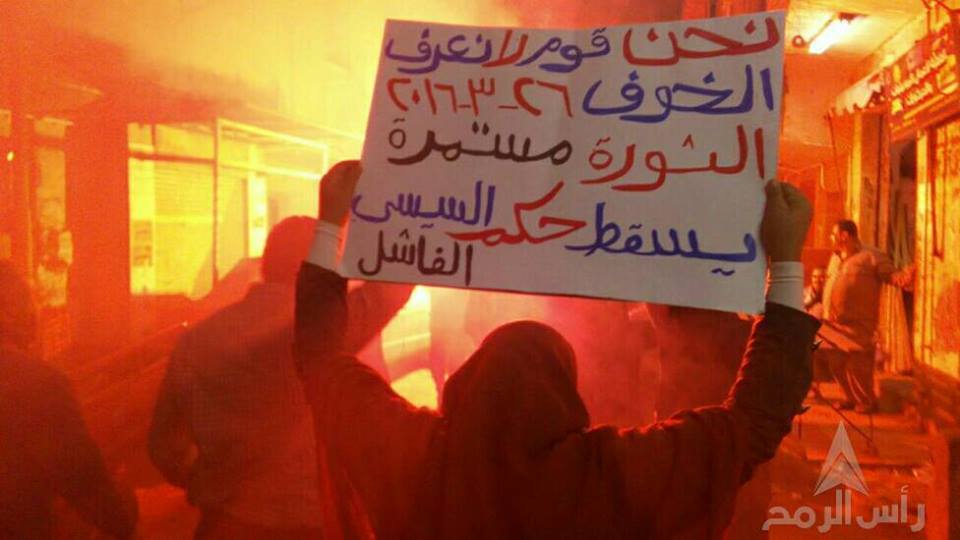 نحن قوم لا نعرف
الخوف ٢٦-٣-٢٠١٦
الثورة مستمرة
يسقط حكم السيسي
الفاشل
رأس الرمح